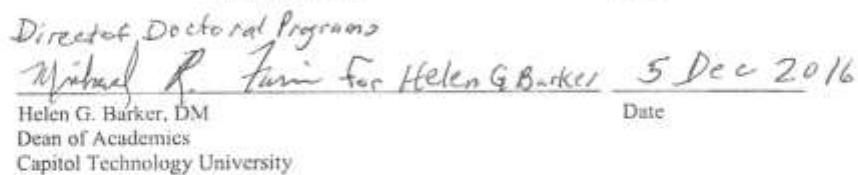 Director, Doctoral Programs
Michael R. for Helen G Barker 5 Dec 2016
Helen G. Barker, DM Date
Dean of Academics
Capitol Technology University